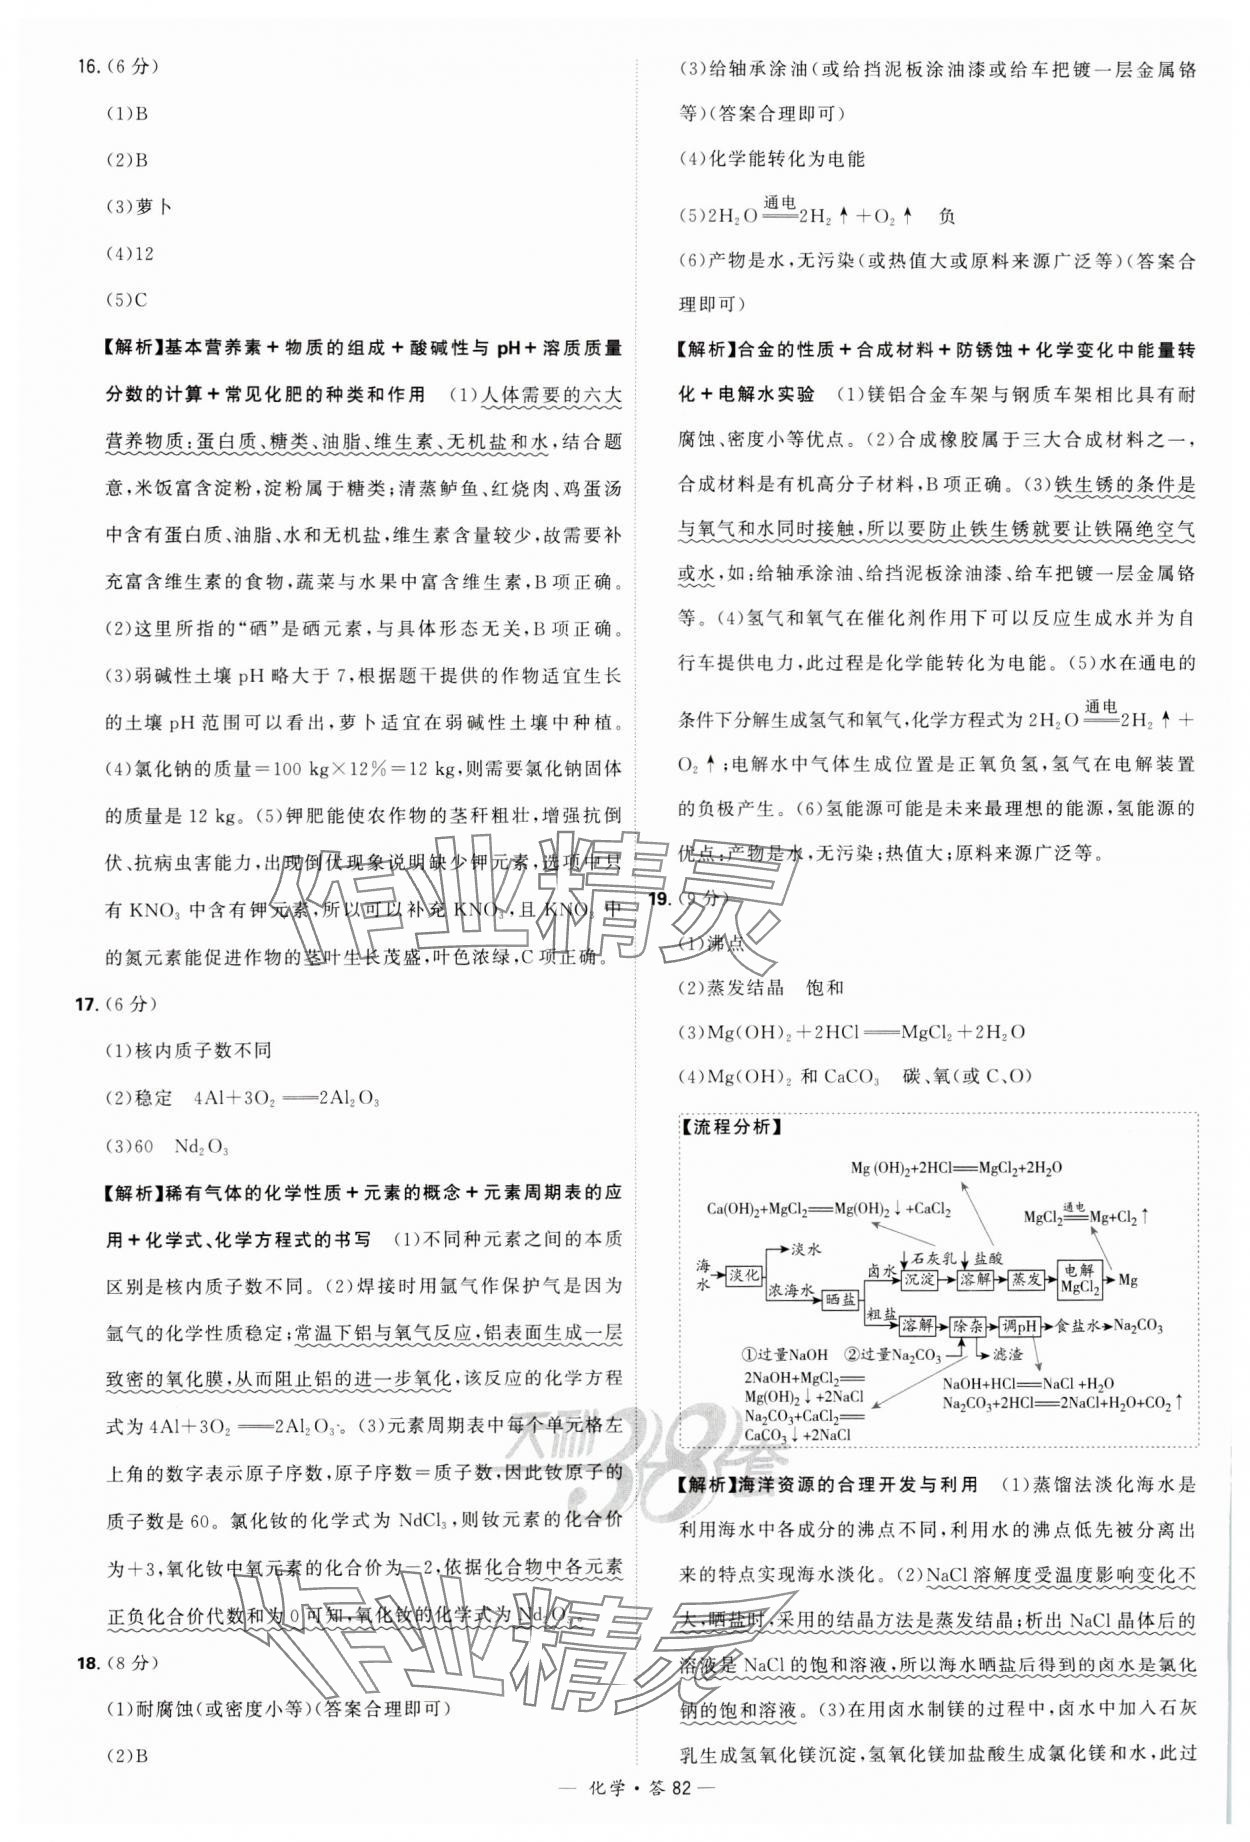 16.(6 分)
(1)B
(2)B
(3)萝卜
(4)12
(5)C
【解析】基本营养素+物质的组成+酸碱性与 pH+溶质质量
分数的计算+常见化肥的种类和作用 (1)人体需要的六大
营养物质:蛋白质、糖类、油脂、维生素、无机盐和水,结合题
意,米饭富含淀粉,淀粉属于糖类;清蒸鲈鱼、红烧肉、鸡蛋汤
中含有蛋白质、油脂、水和无机盐,维生素含量较少,故需要补
充富含维生素的食物,蔬菜与水果中富含维生素,B 项正确。
(2)这里所指的“硒”是硒元素,与具体形态无关,B 项正确。
(3)弱碱性土壤 pH 略大于 7,根据题干提供的作物适宜生长
的土壤 pH 范围可以看出,萝卜适宜在弱碱性土壤中种植。
(4)氯化钠的质量=100 kg×12%=12 kg,则需要氯化钠固体
的质量是 12 kg。(5)钾肥能使农作物的茎秆粗壮,增强抗倒
伏、抗病虫害能力,出现倒伏现象说明缺少钾元素,选项中只
有 KNO₃ 中含有钾元素,所以可以补充 KNO₃,且 KNO₃ 中
的氮元素能促进作物的茎叶生长茂盛,叶色浓绿,C 项正确。
17.(6 分)
(1)核内质子数不同
(2)稳定 4Al+3O₂══2Al₂O₃
(3)60 Nd₂O₃
【解析】稀有气体的化学性质+元素的概念+元素周期表的应
用+化学式、化学方程式的书写 (1)不同种元素之间的本质
区别是核内质子数不同。(2)焊接时用氩气作保护气是因为
氩气的化学性质稳定;常温下铝与氧气反应,铝表面生成一层
致密的氧化膜,从而阻止铝的进一步氧化,该反应的化学方程
式为 4Al+3O₂══2Al₂O₃。(3)元素周期表中每个单元格左
上角的数字表示原子序数,原子序数=质子数,因此钕原子的
质子数是 60。氯化钕的化学式为 NdCl₃,则钕元素的化合价
为+3,氧化钕中氧元素的化合价为-2,依据化合物中各元素
正负化合价代数和为 0 可知,氧化钕的化学式为 Nd₂O₃。
18.(8 分)
(1)耐腐蚀(或密度小等)(答案合理即可)
(2)B
(3)给轴承涂油(或给挡泥板涂油漆或给车把镀一层金属铬
等)(答案合理即可)
(4)化学能转化为电能
(5)2H₂O══通电══2H₂↑+O₂↑ 负
(6)产物是水,无污染(或热值大或原料来源广泛等)(答案合
理即可)
【解析】合金的性质+合成材料+防锈蚀+化学变化中能量转
化+电解水实验 (1)镁铝合金车架与钢质车架相比具有耐
腐蚀、密度小等优点。(2)合成橡胶属于三大合成材料之一,
合成材料是有机高分子材料,B 项正确。(3)铁生锈的条件是
与氧气和水同时接触,所以要防止铁生锈就要让铁隔绝空气
或水,如:给轴承涂油、给挡泥板涂油漆、给车把镀一层金属铬
等。(4)氢气和氧气在催化剂作用下可以反应生成水并为自
行车提供电力,此过程是化学能转化为电能。(5)水在通电的
条件下分解生成氢气和氧气,化学方程式为 2H₂O══通电══2H₂↑+
O₂↑;电解水中气体生成位置是正氧负氢,氢气在电解装置
的负极产生。(6)氢能源可能是未来最理想的能源,氢能源的
优点:产物是水,无污染;热值大;原料来源广泛等。
19.(9 分)
(1)沸点
(2)蒸发结晶 饱和
(3)Mg(OH)₂+2HCl══MgCl₂+2H₂O
(4)Mg(OH)₂ 和 CaCO₃ 碳、氧(或 C、O)
【流程分析】
Mg(OH)₂+2HCl══MgCl₂+2H₂O
Ca(OH)₂+MgCl₂══Mg(OH)₂↓+CaCl₂
MgCl₂══通电══Mg+Cl₂↑
海水→淡化→淡水
浓海水→晒盐
卤水→沉淀→溶解→蒸发→电解MgCl₂→Mg
↓石灰乳 ↓盐酸
粗盐→溶解→除杂→调pH→食盐水→Na₂CO₃
①过量NaOH ②过量Na₂CO₃ →滤渣
2NaOH+MgCl₂══
Mg(OH)₂↓+2NaCl
Na₂CO₃+CaCl₂══
CaCO₃↓+2NaCl
NaOH+HCl══NaCl+H₂O
Na₂CO₃+2HCl══2NaCl+H₂O+CO₂↑
【解析】海洋资源的合理开发与利用 (1)蒸馏法淡化海水是
利用海水中各成分的沸点不同,利用水的沸点低先被分离出
来的特点实现海水淡化。(2)NaCl 溶解度受温度影响变化不
大,晒盐时,采用的结晶方法是蒸发结晶;析出 NaCl 晶体后的
溶液是 NaCl 的饱和溶液,所以海水晒盐后得到的卤水是氯化
钠的饱和溶液。(3)在用卤水制镁的过程中,卤水中加入石灰
乳生成氢氧化镁沉淀,氢氧化镁加盐酸生成氯化镁和水,此过
— 化学·答 82 —
作业精灵
天利38套
作业精灵